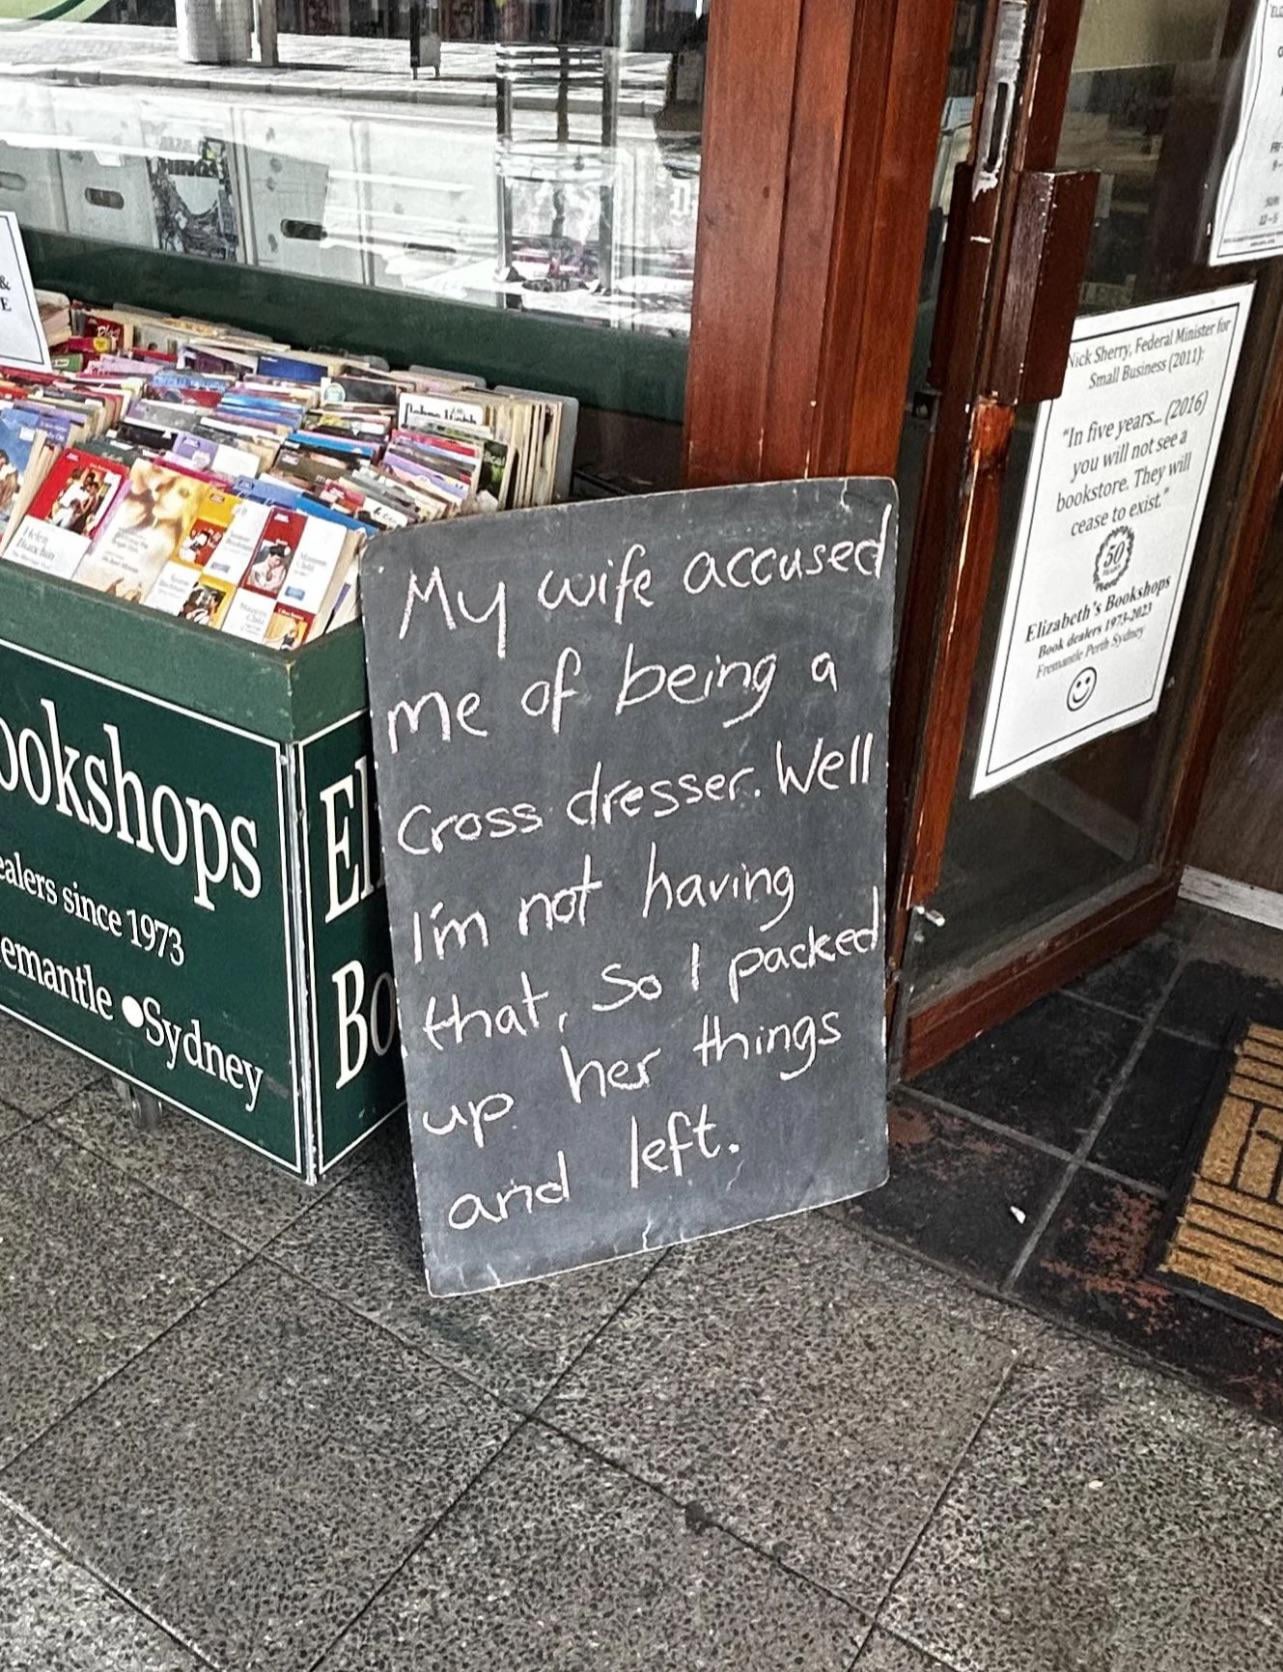 My wife accused
me of being a
Cross dresser. Well
I'm not having
that, So I packed
up her things
and left.
Nick Sherry, Federal Minister for
Small Business (2011):
"In five years... (2016)
you will not see a
bookstore. They will
cease to exist."
50
Elizabeth's Bookshops
Book dealers 1973-2023
Fremantle Perth Sydney
ookshops
ealers since 1973
emantle ●Sydney
El
Bo
&
E